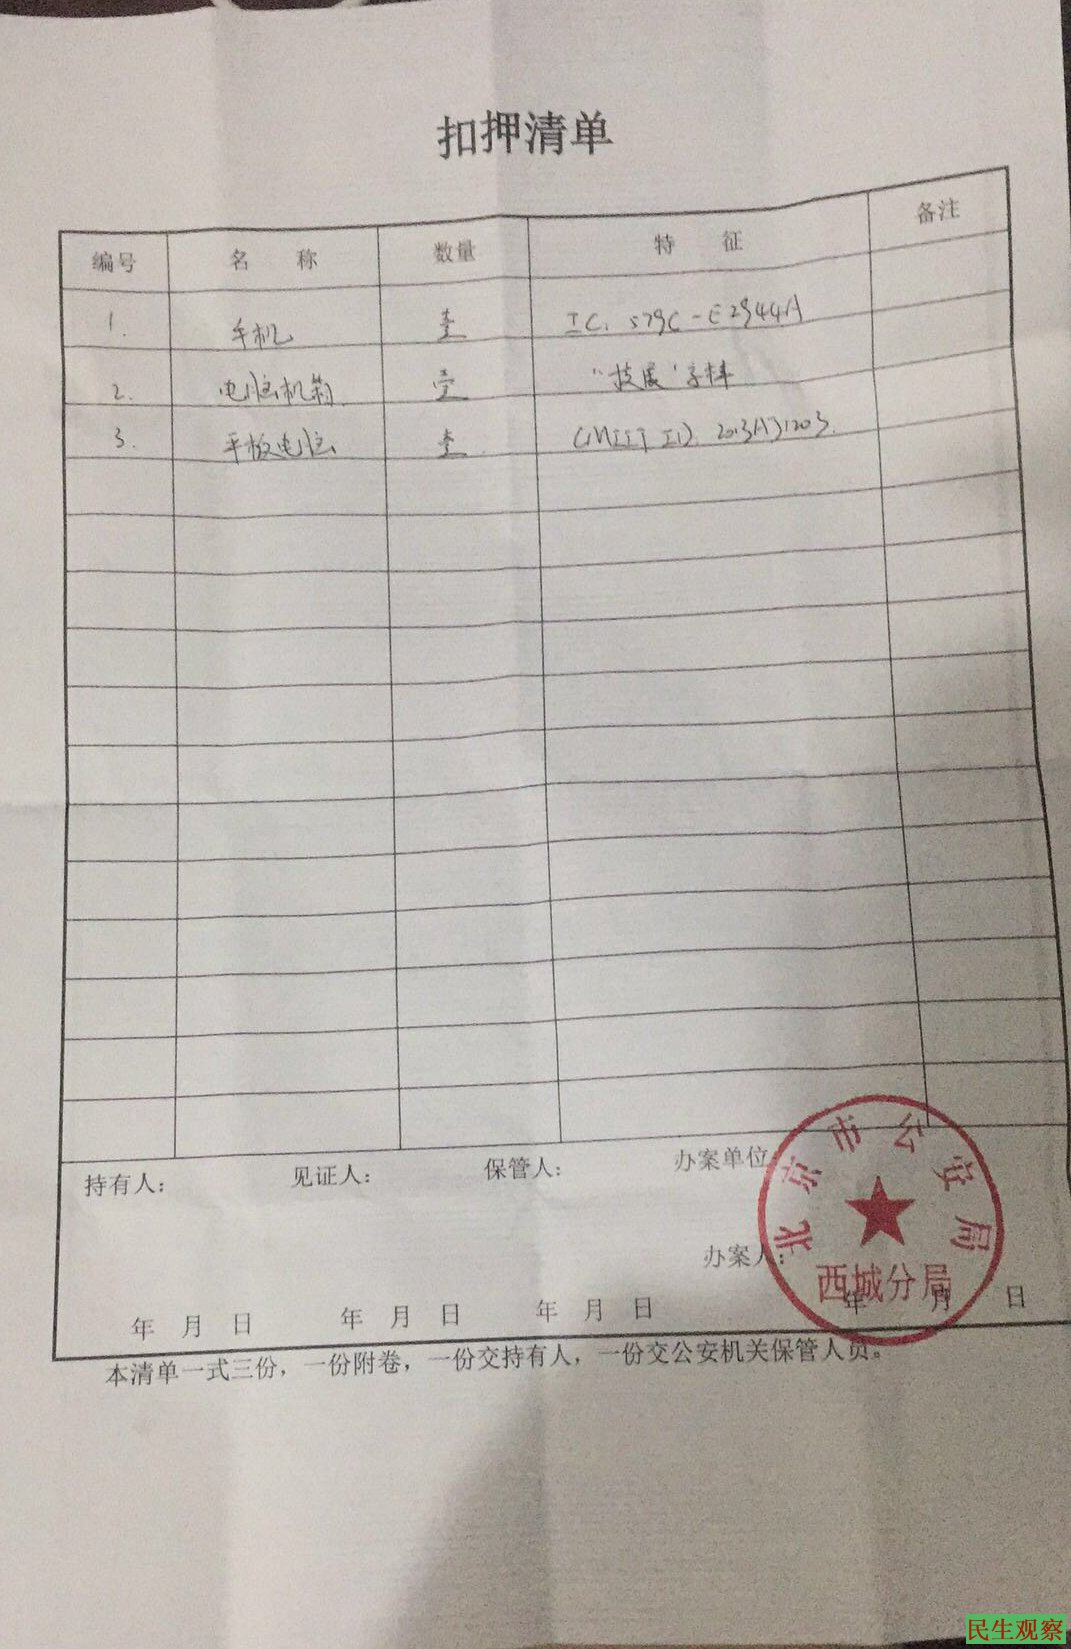 扣押清单
编号 名称 数量 特征 备注
1. 手机 壹 IC: 579C-E2944A
2. 电脑机箱 壹 字样
3. 平板电脑 壹 CMIIT ID 2013AJ1203
持有人: 见证人: 保管人: 办案单位:
办案人:
年 月 日 年 月 日 年 月 日 年 月 日
北京市公安局
西城分局
本清单一式三份，一份附卷，一份交持有人，一份交公安机关保管人员。
民生观察